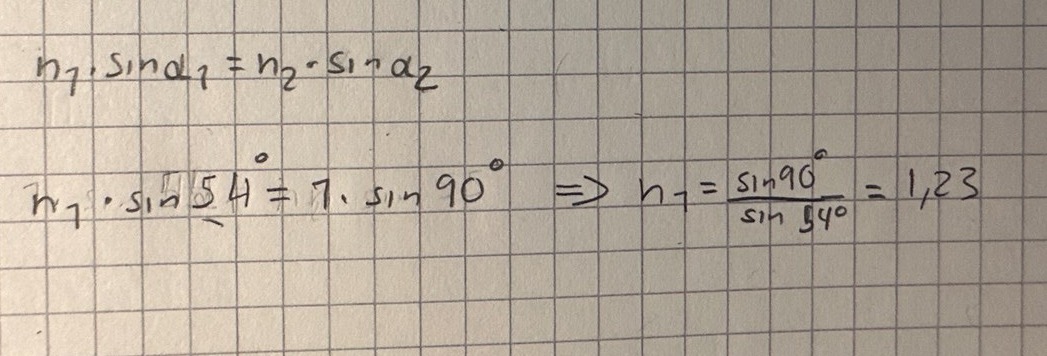 n₁ · sin α₁ = n₂ · sin α₂
n₁ · sin 54° = 1 · sin 90° ⇒ n₁ = sin 90° / sin 54° = 1,23